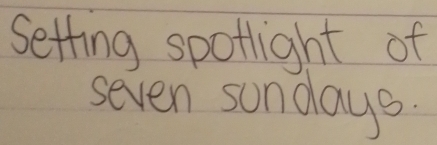 Setting spotlight of
seven sundays.